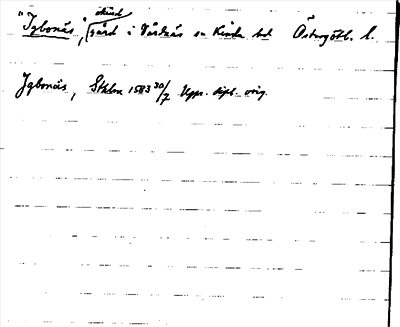 "Igbonäs", okänd
gård i Vårdnäs sn Kinda hd Östergötl. l.
Igbonäs, Sthlm 1583 30/7 Upps. dipl. orig.